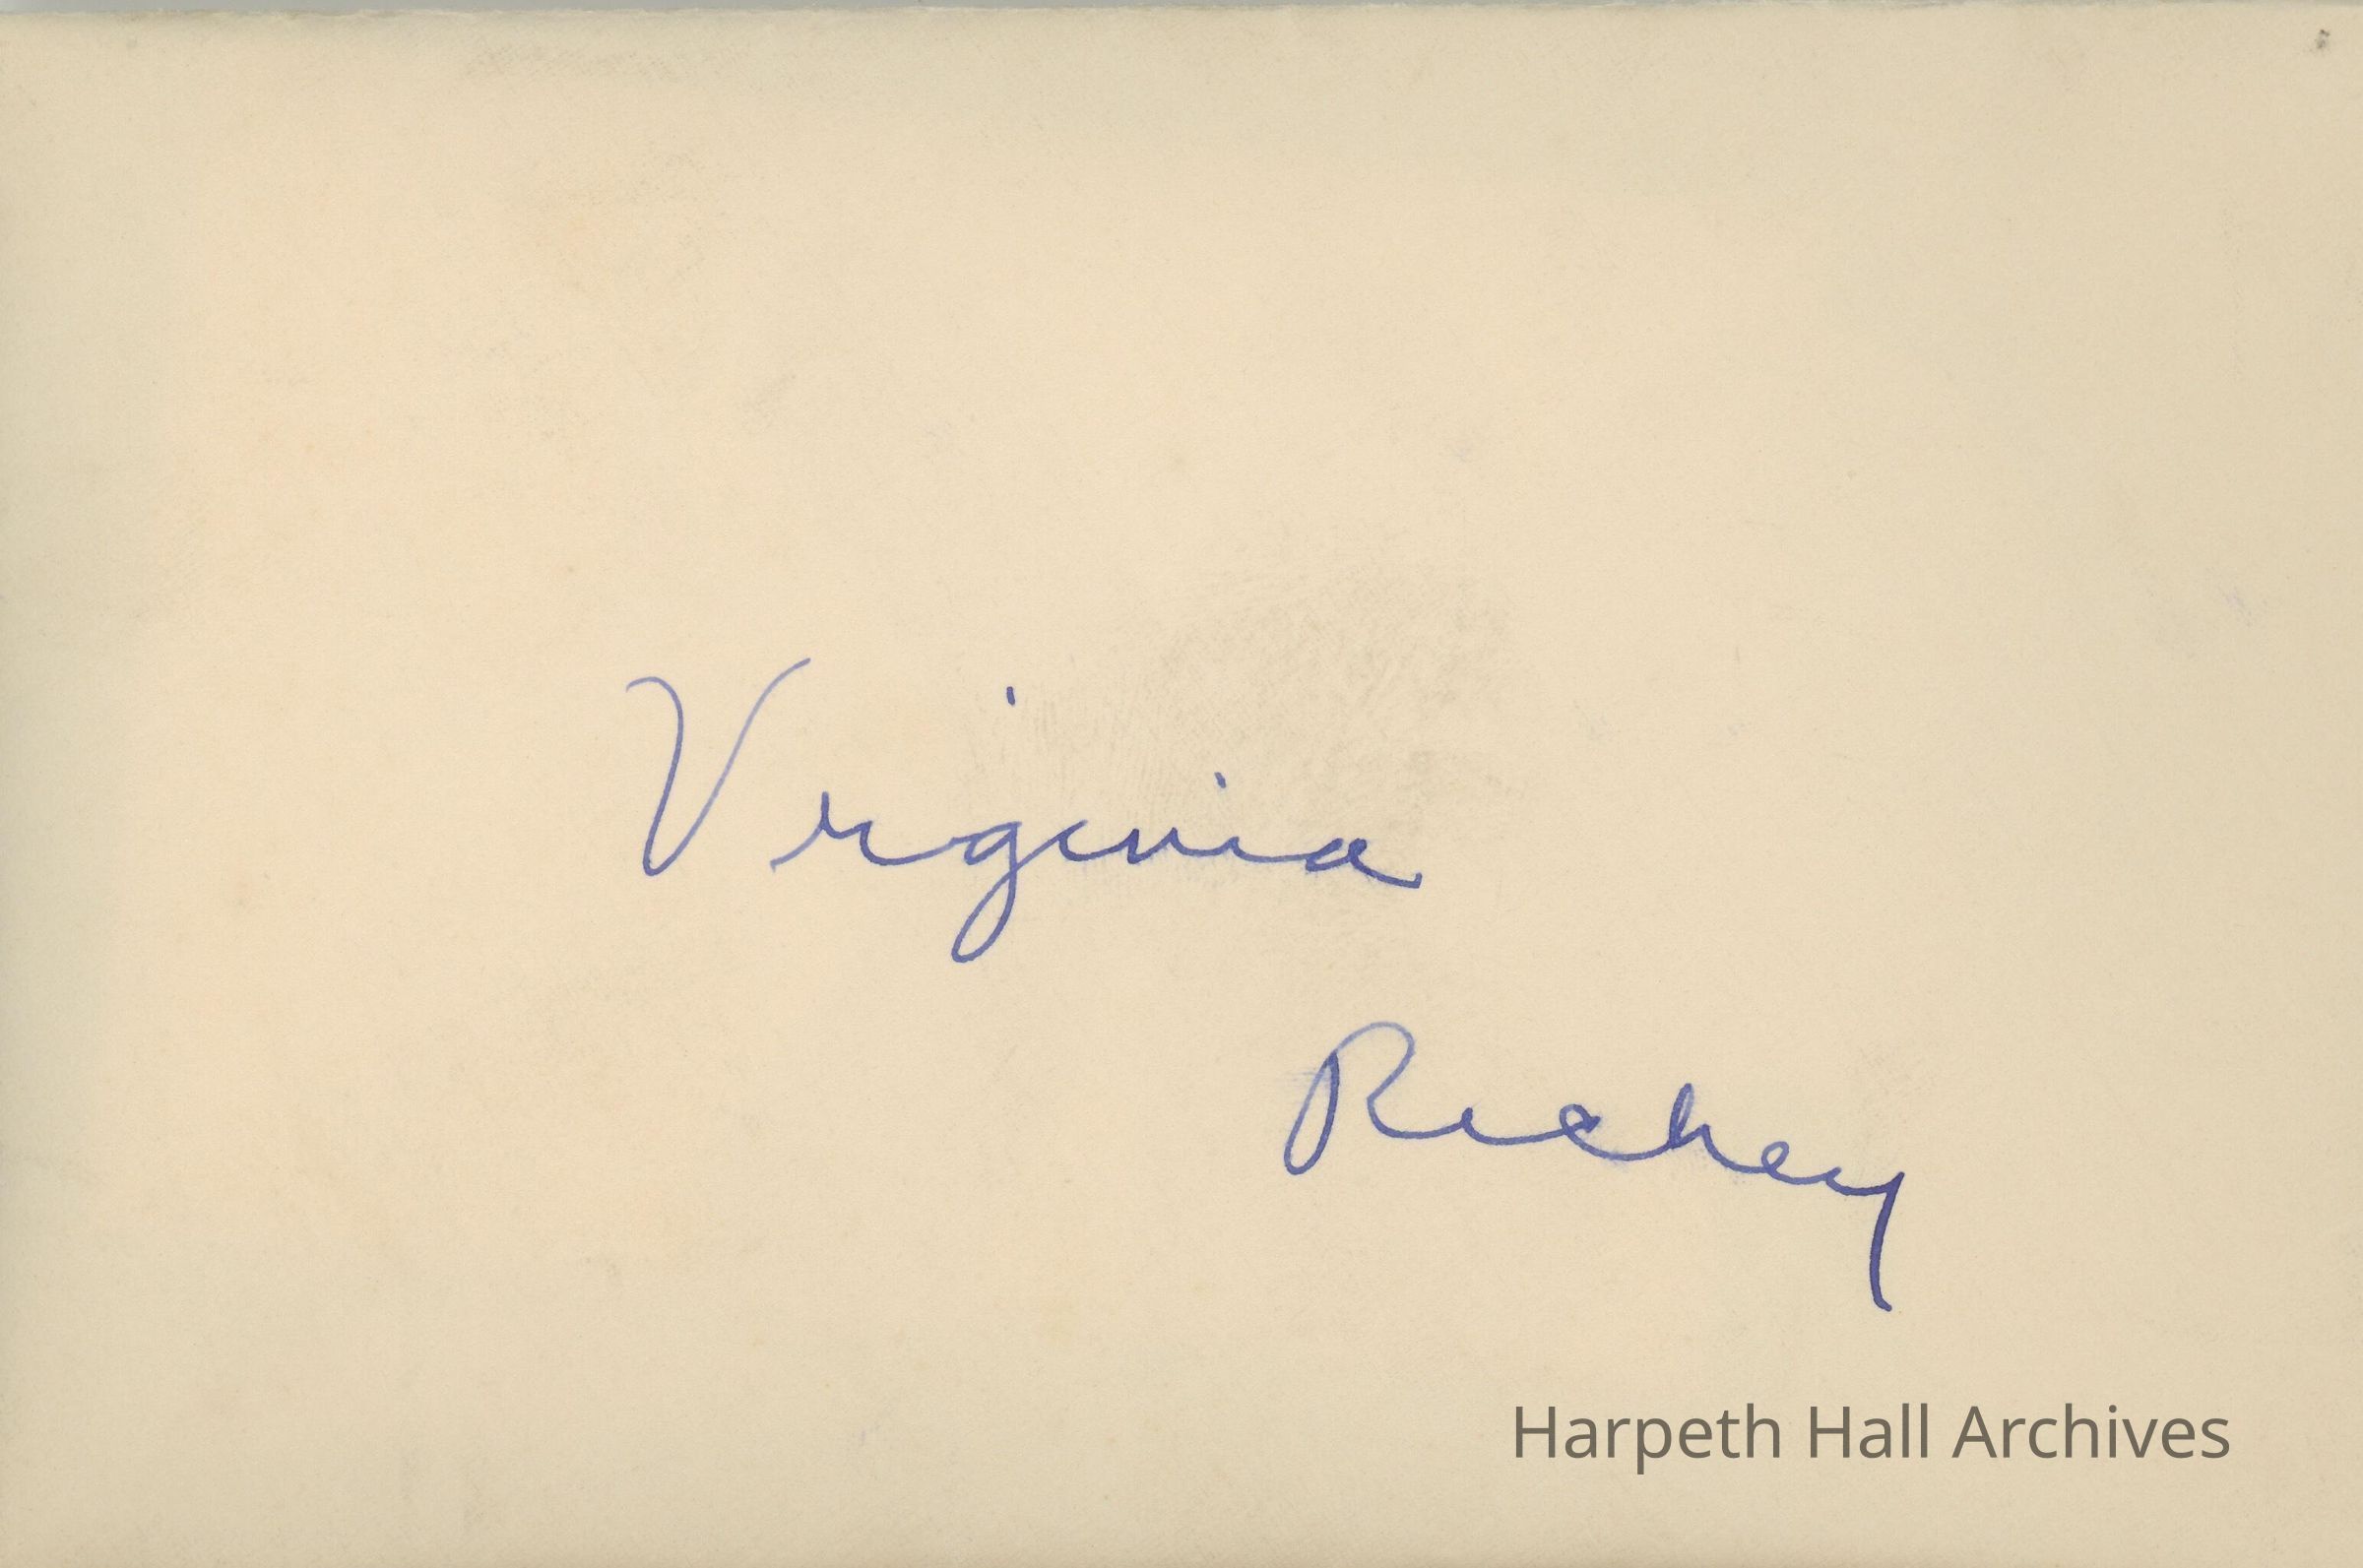 Virginia
Richey
Harpeth Hall Archives